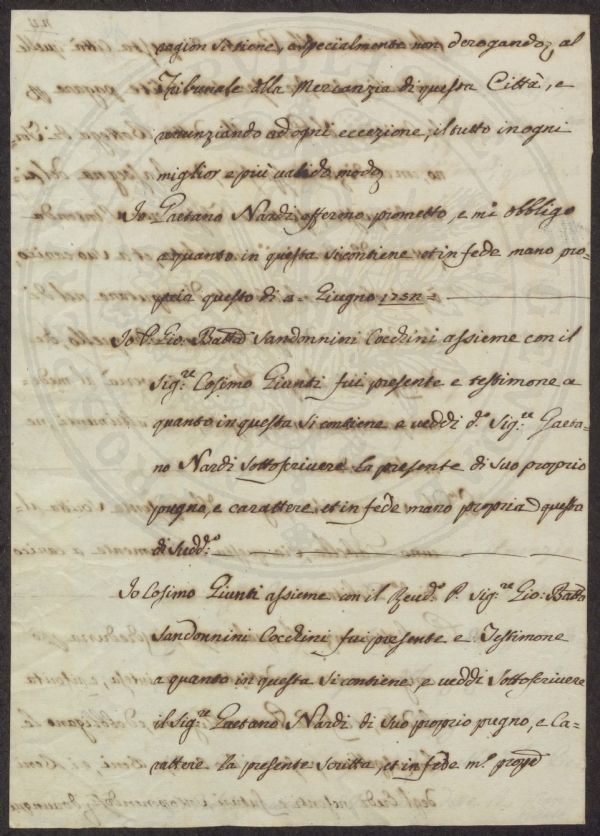 ragion si tiene, especialmente non derogando al
Tribunale della Mercanzia di questa Città, e
renunziando ad ogni eccezione, il tutto in ogni
miglior e più valido modo
Io Gaetano Nardi affermo, prometto, e mi obbligo
a quanto in questa si contiene et in fede mano pro-
pria questo dì 2. Giugno 1752=
Io P. Gio: Batta Sandonnini Cocchini assieme con il
Sig.re Cosimo Giunti fui presente e testimone a
quanto in questa si contiene e veddi d.o Sig.re Gaeta-
no Nardi sottoscrivere la presente di suo proprio
pugno, e carattere et in fede mano propria questo
dì sudd.o
Io Cosimo Giunti assieme con il Reud.o P. Sig.re Gio: Batta
Sandonnini Cocchini fui presente e Testimone
a quanto in questa si contiene, e veddi sottoscrivere
il Sig.re Gaetano Nardi di suo proprio pugno, e Ca-
rattere la presente scritta, et in fede m.o prop.a